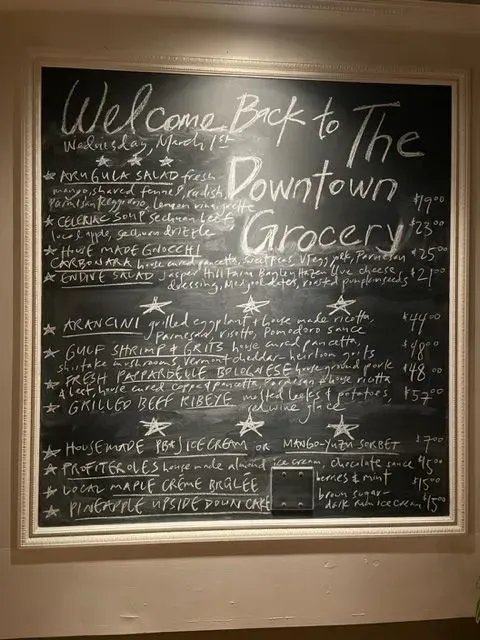 Welcome Back to The
Downtown
Grocery
Wednesday, March 1st
ARUGULA SALAD fresh
mango, shaved fennel, radish,
Parmisan Reggiano, lemon vinaigrette $19.00
CELERIAC SOUP sechuan beef
local apple, sechuan drizzle $23.00
HOUSE MADE GNOCCHI
CARBONARA house cured pancetta, sweet peas, egg yolk, Parmesan $25.00
ENDIVE SALAD Jasper Hill Farm Bayley Hazen blue cheese $21.00
dressing, Medjool dates, roasted pumpkin seeds
ARANCINI grilled eggplant & house made ricotta, $44.00
Parmesan risotto, Pomodoro sauce
GULF SHRIMP & GRITS house cured pancetta, $48.00
shiitake mushrooms, Vermont cheddar-heirloom grits
FRESH PAPPARDELLE BOLOGNESE house ground pork $48.00
& beef, house cured pancetta, Parmisan & house ricotta
GRILLED BEEF RIBEYE melted leeks & potatoes, $57.00
red wine glace
HOUSEMADE PB&J ICE CREAM OR MANGO-YUZU SORBET $7.00
PROFITEROLES house made almond ice cream, chocolate sauce $15.00
LOCAL MAPLE CRÈME BRÛLÉE berries & mint $15.00
PINEAPPLE UPSIDE DOWN CAKE brown sugar-
dark rum ice cream $15.00